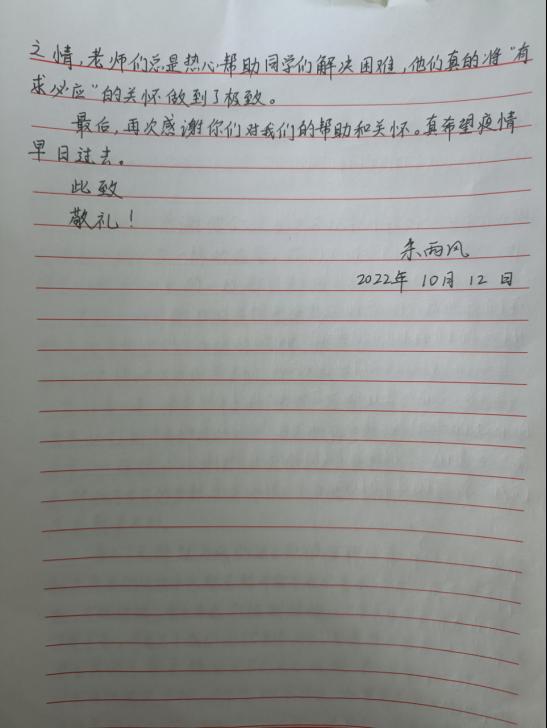 之情,老师们总是热心帮助同学们解决困难,他们真的将“有
求必应”的关怀做到了极致。
最后,再次感谢你们对我们的帮助和关怀。真希望疫情
早日过去。
此致
敬礼!
雨风
2022年 10月 12 日